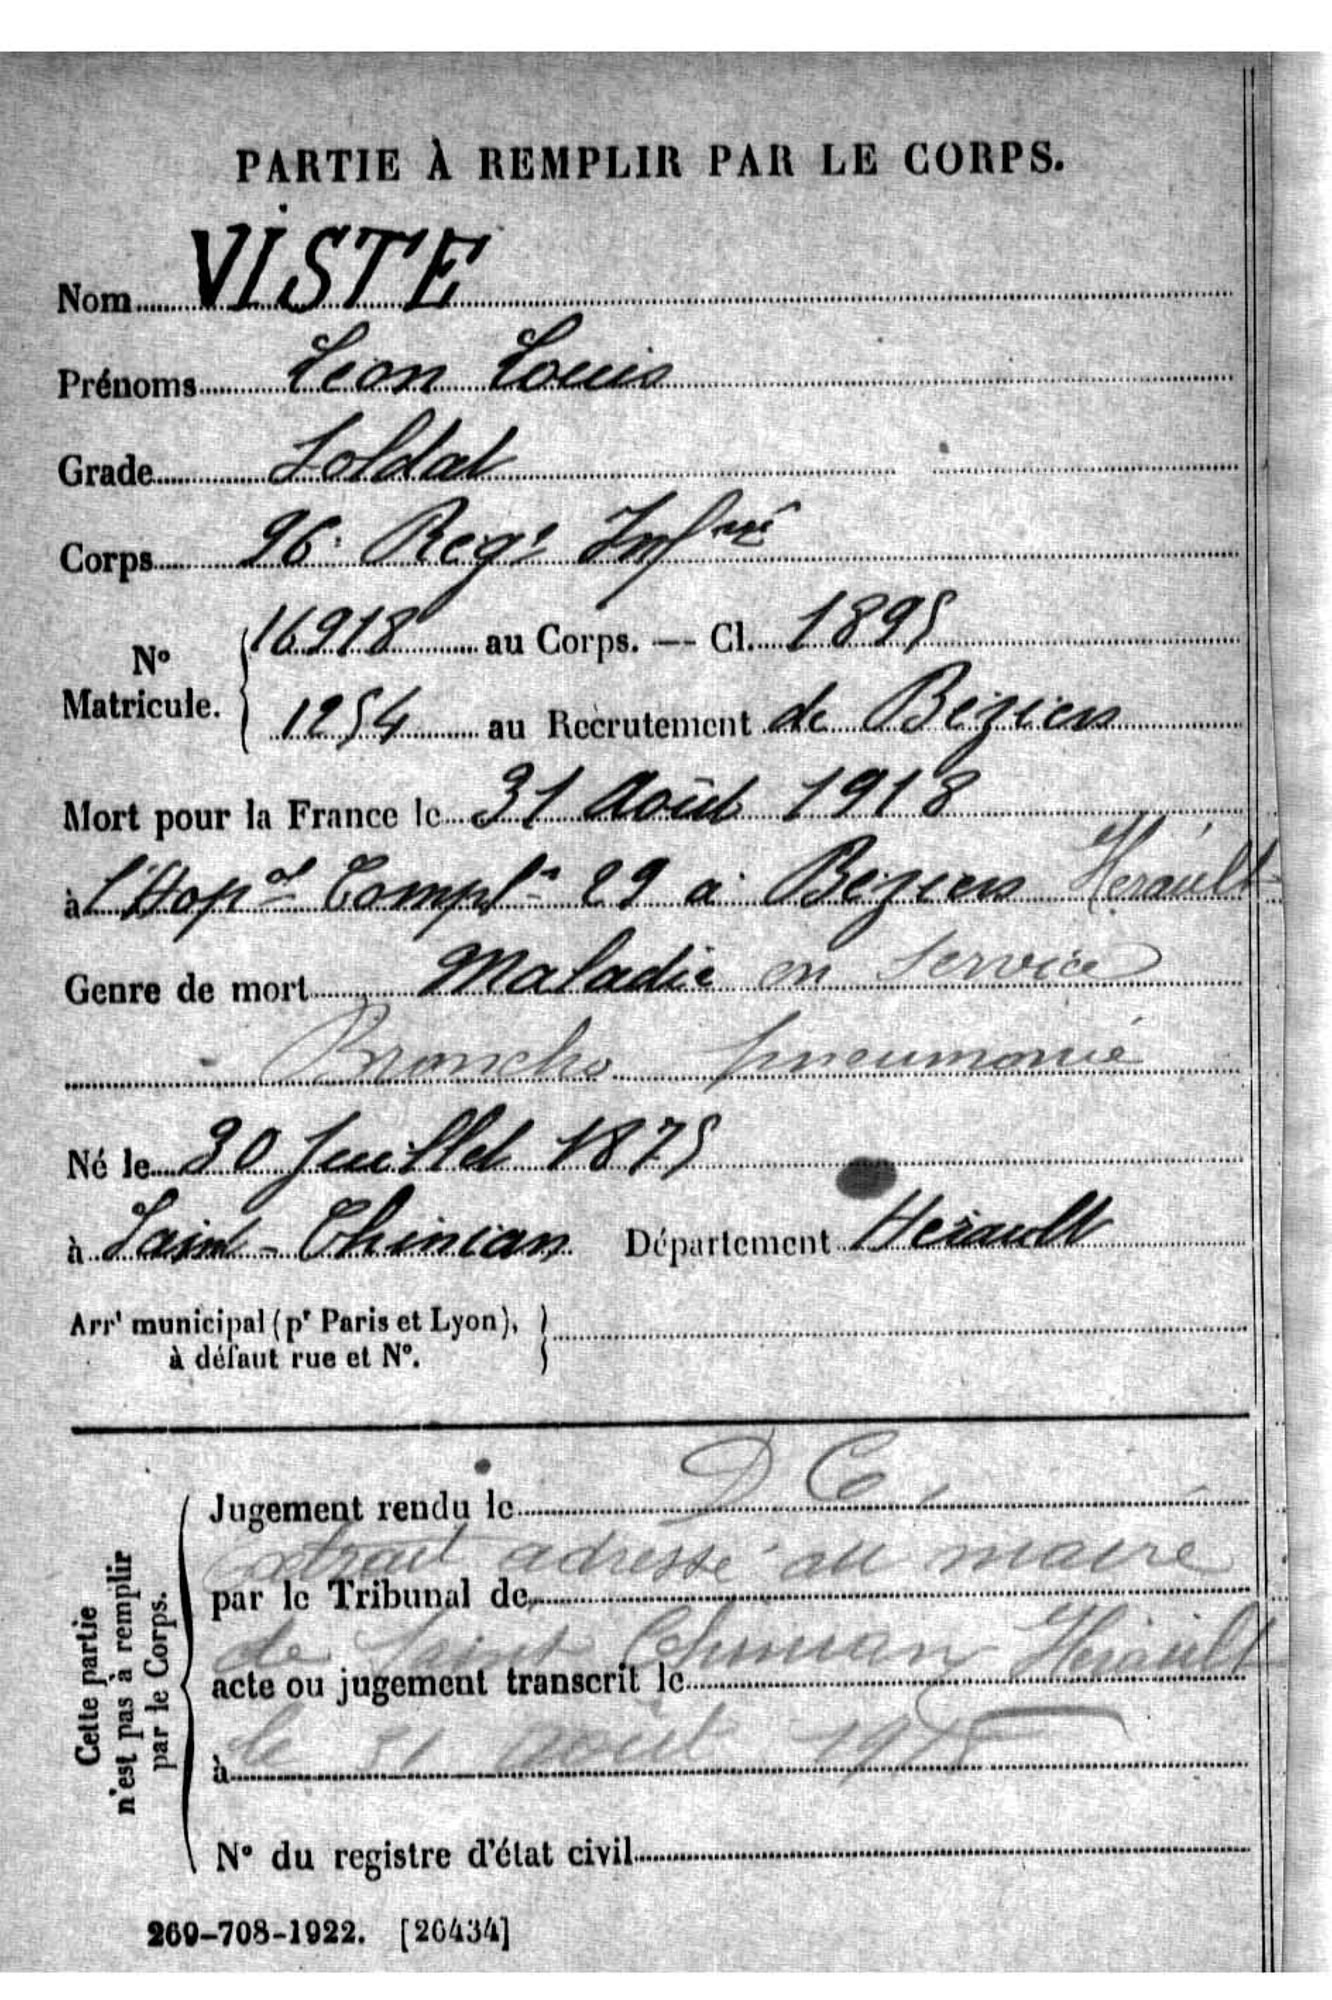 PARTIE À REMPLIR PAR LE CORPS.
Nom VISTE
Prénoms Léon Louis
Grade Soldat
Corps 96e Regt Infrie
N° Matricule. 16918 au Corps. — Cl. 1895
1254 au Recrutement de Béziers
Mort pour la France le 31 Août 1918
à l'Hopal Complre 29 à Béziers Hérault
Genre de mort Maladie en service
Broncho pneumonie
Né le 30 Juillet 1875
à Saint-Chinian Département Hérault
Arrt municipal (pr Paris et Lyon),
à défaut rue et N°.
D C.
Jugement rendu le
Extrait adressé au maire
par le Tribunal de
de Saint Chinian Hérault
acte ou jugement transcrit le
le 31 août 1918
à
N° du registre d'état civil
Cette partie
n'est pas à remplir
par le Corps.
269-708-1922. [26434]